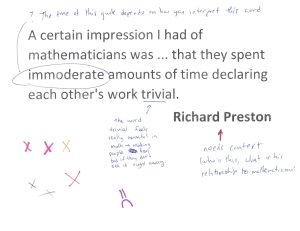 ? The tone of this quote depends on how you interpret this word
A certain impression I had of
mathematicians was ... that they spent
immoderate amounts of time declaring
each other's work trivial.
Richard Preston
the word
trivial feels
really harmful in
math → making
people feel
bad if they don't
see it right away.
needs context
(who's this, what is his
relationship to mathematicians)